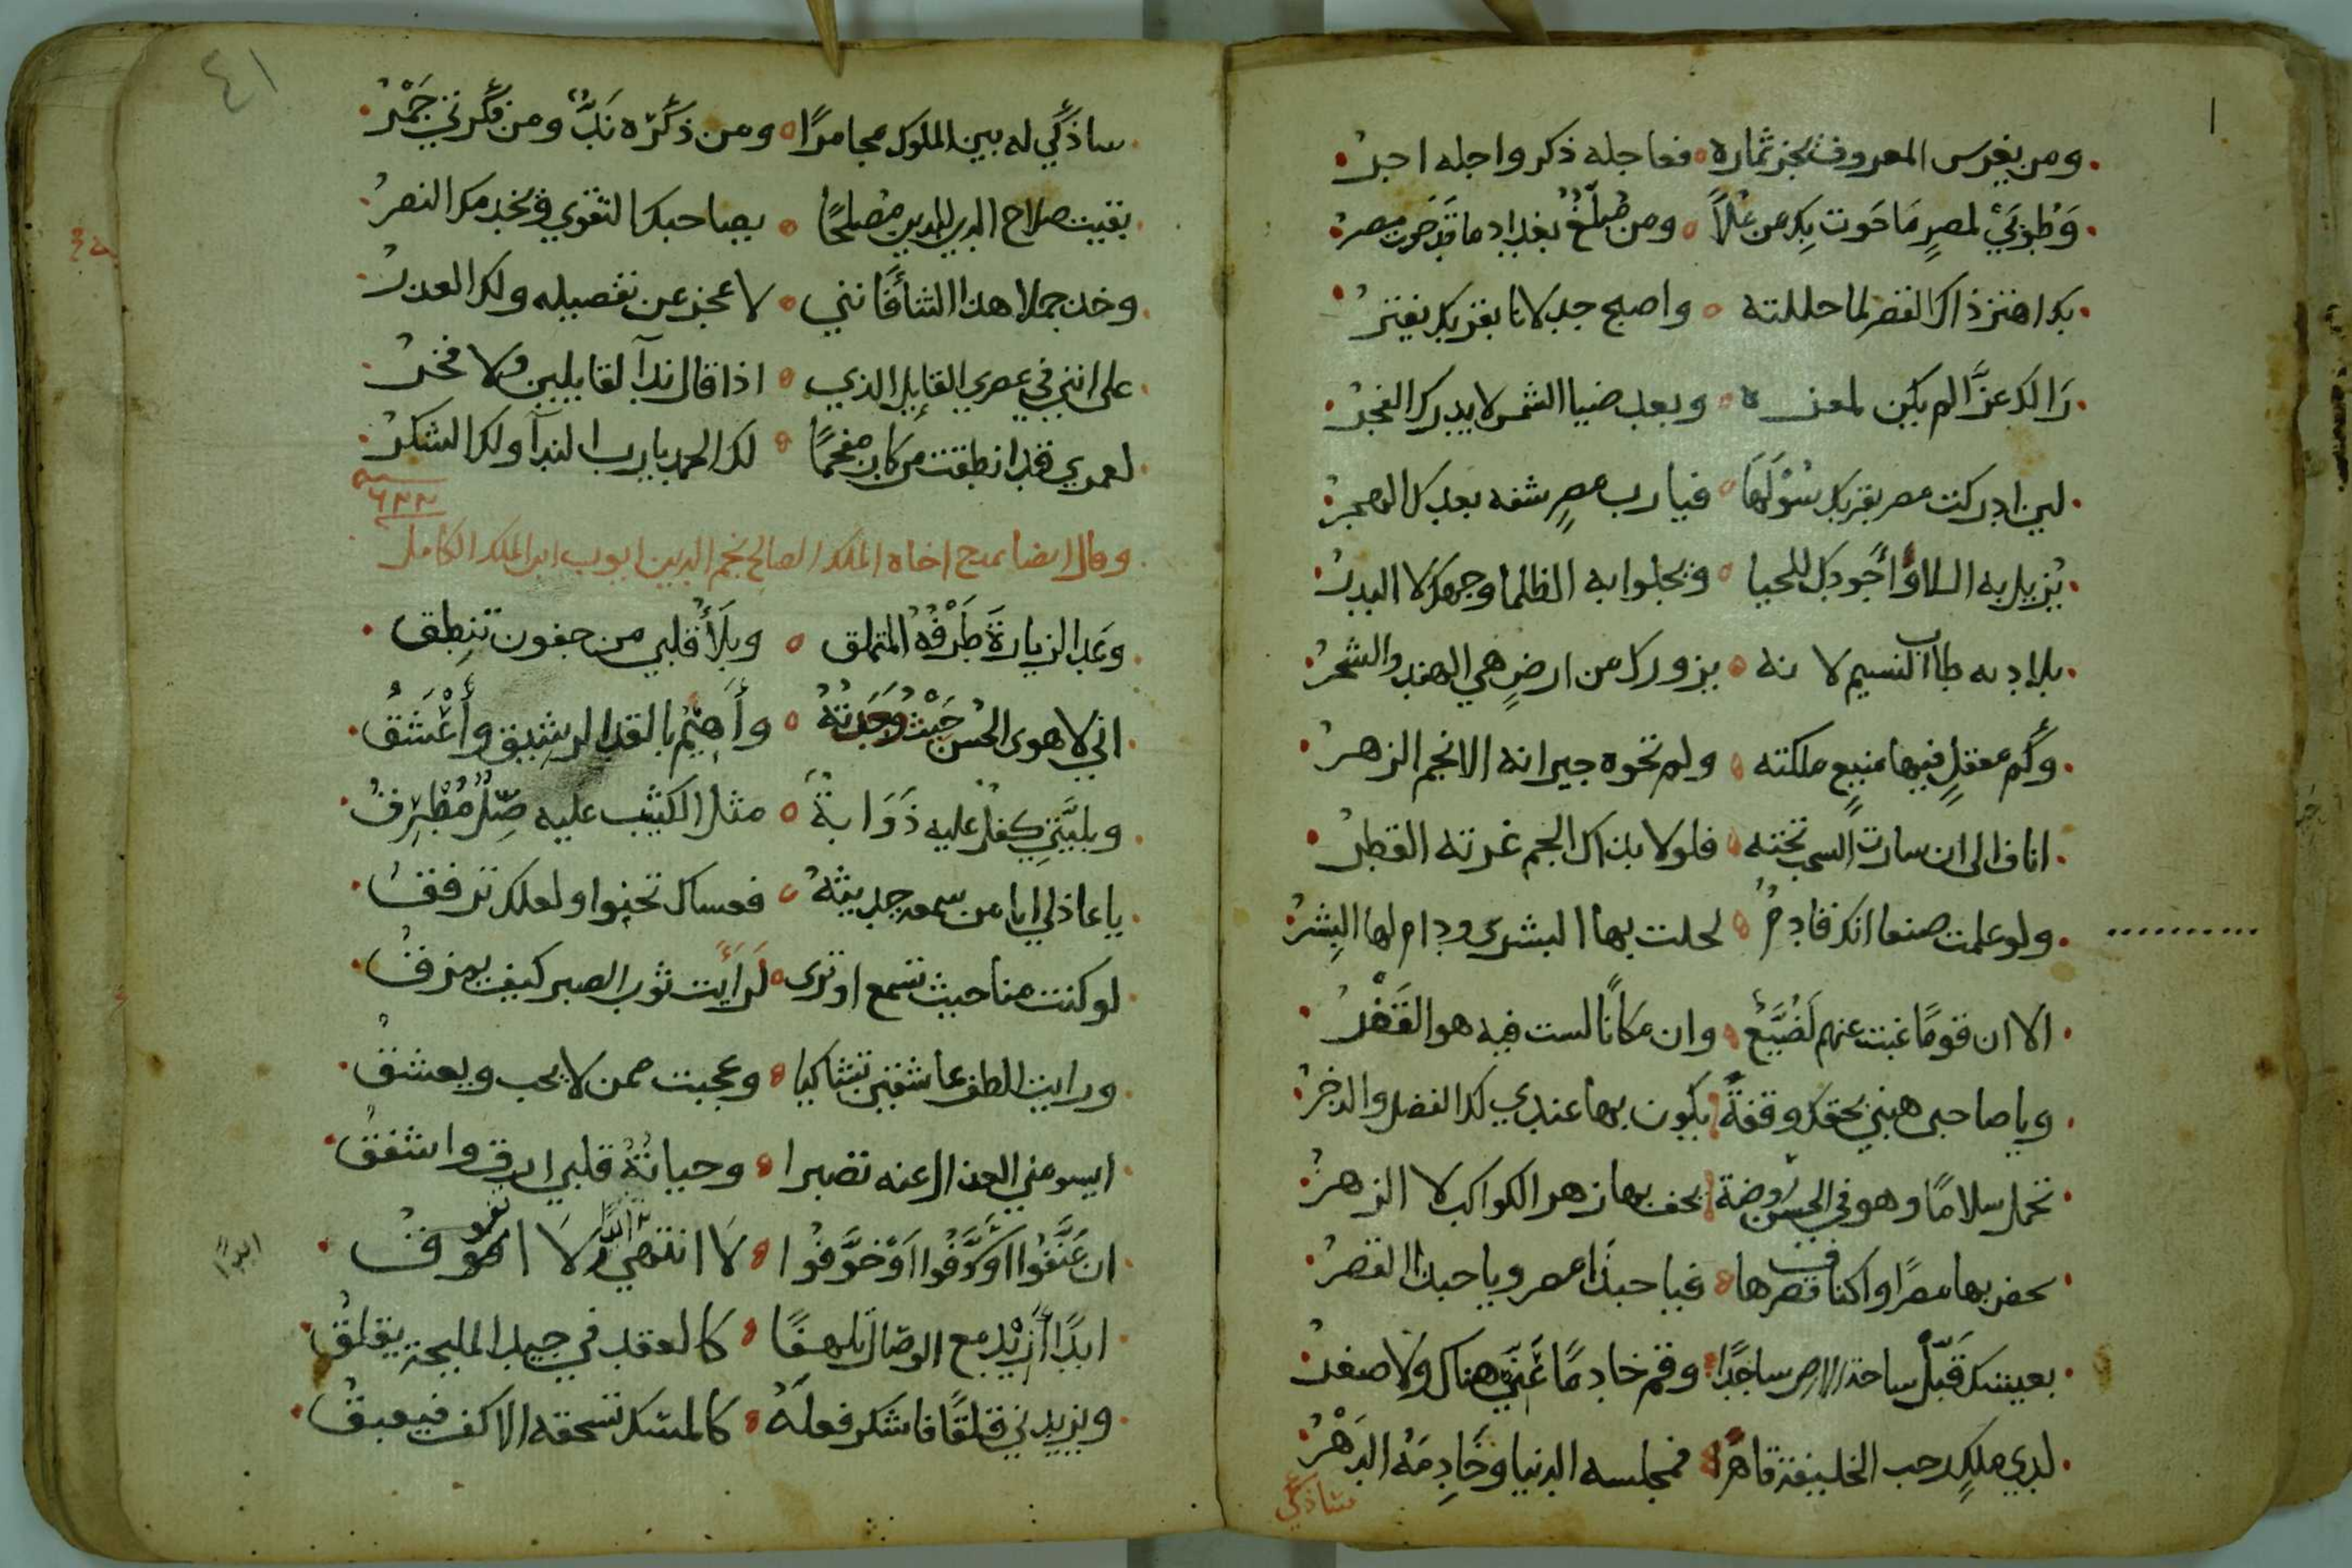 ومن يغرس المعروف يجز ثماره فعاجله ذكر واجله اجر
وَطُوبَيْ لمصرٍ مَا حَوت بك من عُلاً ومن مُبلّغٌ بغداد ما قد حوت مصر
بك اهتز ذاك القصر لما حللته واصبح جدلانا بقربك يفتر
رَا لك عزَّا لم يكن لمعزه وبعد ضيا الشمس لا يدرك الفجر
لين ادركت مصر بقربك سُوْلَهَا فيارب مصرٍ شفه بعدك الهجر
يزيل به اللاوَّا جُودك للحيا ويجلوا به الظلما وجهك لا البدر
بلاد به طاب النسيم لانه يزورك من ارضٍ هي الهند والشحر
وكَم معقلٍ فيها منيعٍ ملكته ولم تحوه جيرانه الانجم الزهر
انافا الى ان سارت السحب تحته فلولا نداك الجم غرته القطر
ولو علمت صنعا انك قادمٌ لحلت بها البشرى ودام لها البِشر
الا ان قومًا غبت عنهم لَضُيَّعٌ وان مكانًا لست فيه هو القَفْر
ويا صاحبى هبني بحقك وقفةً يكون بها عندي لك الفضل والدخر
تحمل سلامًا وهو في الحسن روضة يحف بها زهر الكواكب لا الزهر
بها مصرًا واكناف قصرها فيا حبذا مصر ويا حبذا القصر
بعيشك قَبّل ساحة ساجدًا وقم خادمًا عَنِّي هناك ولا صغر
لدي ملكٍ رحب الخليقة قاهرًا فمجلسه الدنيا وخَادِمَهُ الدهْرُ
ساذكي
٤١
ساذكي له بين الملوك مجامرًا ومن ذكْره نَدٌّ ومن فكرتي جَمْرُ
بقيت صلاح الدين للدين مصلحًا يصاحبك التقوي ويخدمك النصر
وخذ جملا هذا الثنا فانني لاعجز عن تفصيله ولك العذر
على انني في عصري القايل الذي اذا قال ندآ لقايلين ولا فخر
لعمري قد انطقت من كان مفحمًا لك الحمد يارب الندآ ولك الشكر
وقال ايضا يمدح اخاه الملك الصالح نجم الدين ايوب ابن الملك الكامل
وعَد الزيارةَ طَرْفُهُ المتملق وبلاُ قلبي من جفون تنطِق
اني لاهوى الحسن حَيْثُ وُجَدتهُ وأَهِيْمُ بالقد الرشِيق وأَعْشَقُ
وبليّتي كفل عليه ذَوَابةٌ مثل الكثيب عليه صِلٌّ مُطْرِق
يا عاذلي اما من سمعه حديثهُ فعساك تحنوا ولعلك ترفق
لو كنت منا حيث تسمع او ترى لَرَأيت ثوب الصبر كيف يمزق
ورايت الطف عاشقين تشاكيا وعجبت ممن لا يحب ويعشق
ايسومني العذال عنه تصبرا وحياتهُ قلبي ارق واشفق
ان عَنَّفُوا اوْ اوْ خوَّفُوا لَا انتهي ولَا
ابدًا
ابدًا أَزِيْد مع الوصال تلهفًا كالعقد في جيد المليحة يقلق
ويزيدني قلقًا فاشكر فعلَهُ كالمسك تسحقه الاكف فيعبق